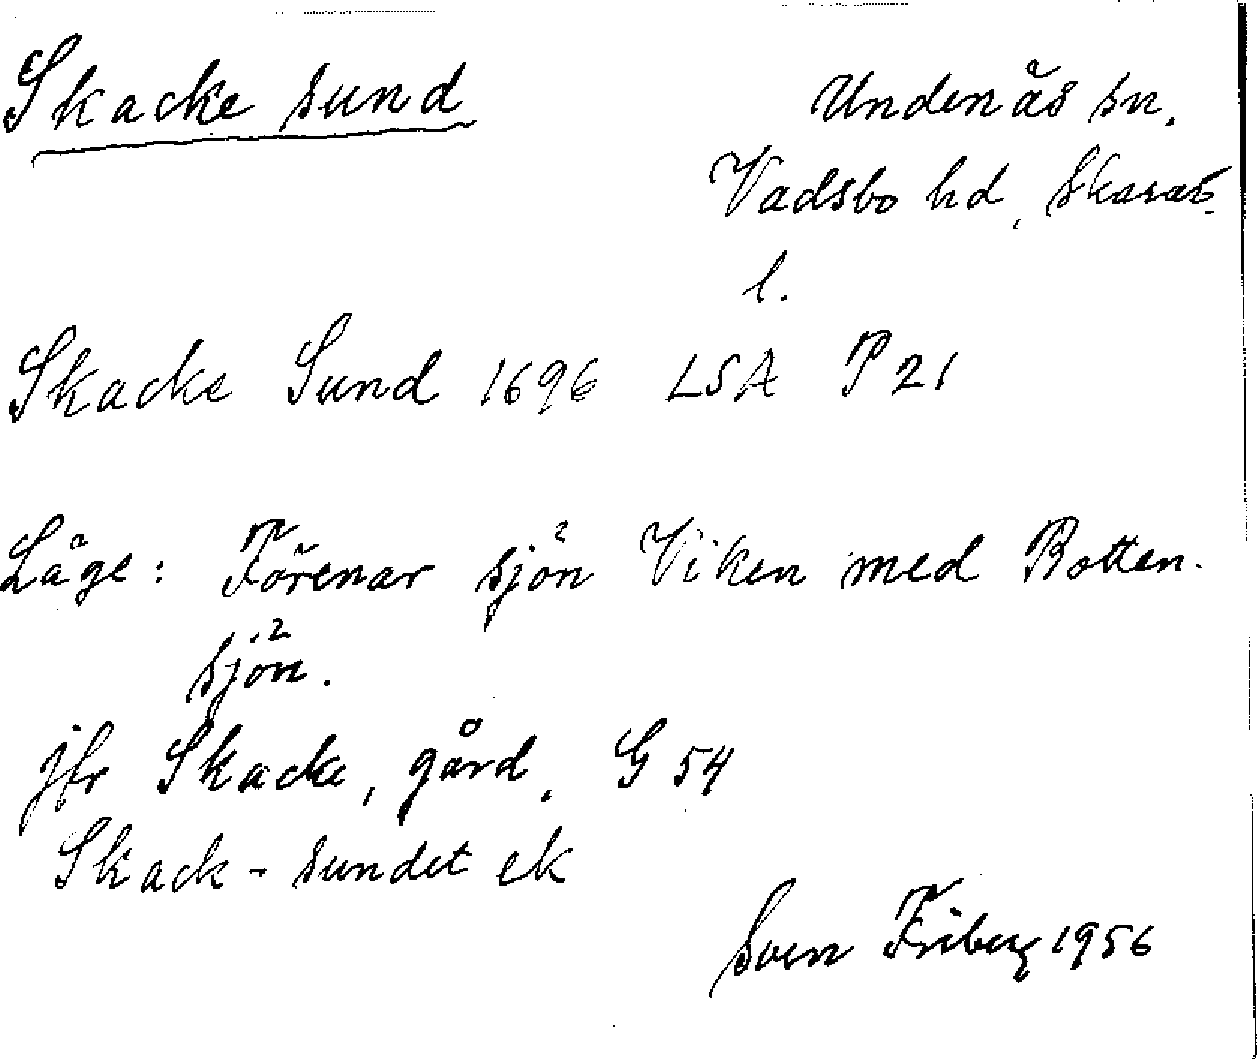 Skacke sund
Undenäs sn.
Vadsbo hd, Skarab.
l.
Skacke Sund 1696 LSA P 21
Läge: Förenar sjön Viken med Botten-
sjön.
jfr Skacke, gård, G 54
Skack-sundet ek
Sven Friberg 1956